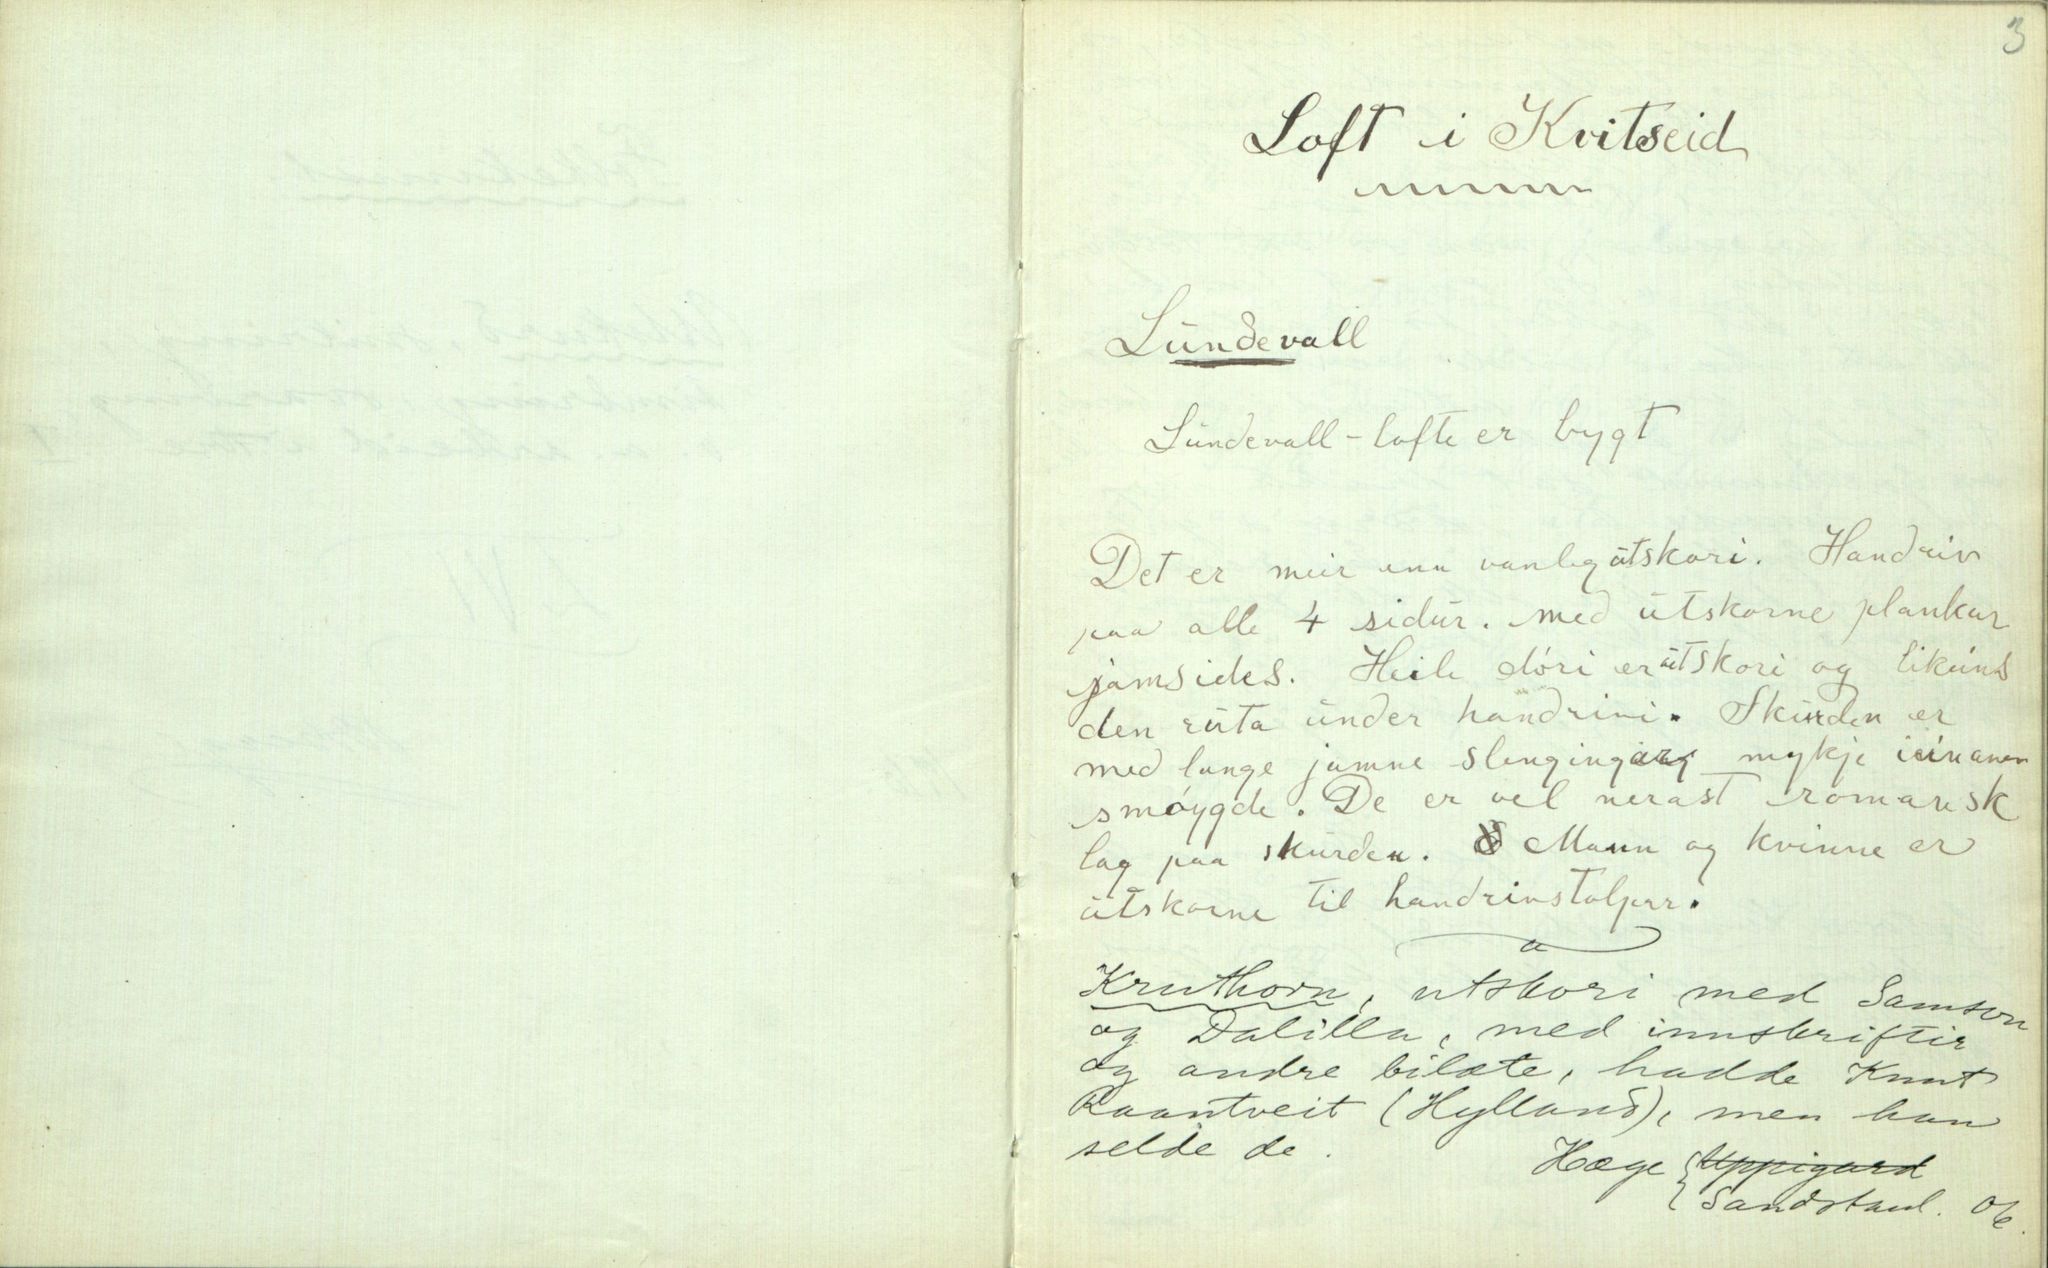 3
Loft i Kvitseid
Lundevall
Lundevall-lofte er bygt
Det er meir enn vanleg utskori. Handriv
paa alle 4 sidur. med utskorne plankar
jamsides. Heile dóri er utskori og likeins
den ruta under handrivi. Skurden er
med lange jamne slengingar mykje i einanen
smóygde. De er vel nerast romansk
lag paa skurden. Mann og kvinne er
utskorne til handrivstolpar.
Kruthorn, utskori med Samson
og Dalilla, med innskriftir
og andre bilæte, hadde Knut
Raantveit (Hylland), men han
selde de.
Hæge Uppigard
Sandstaul. 06.